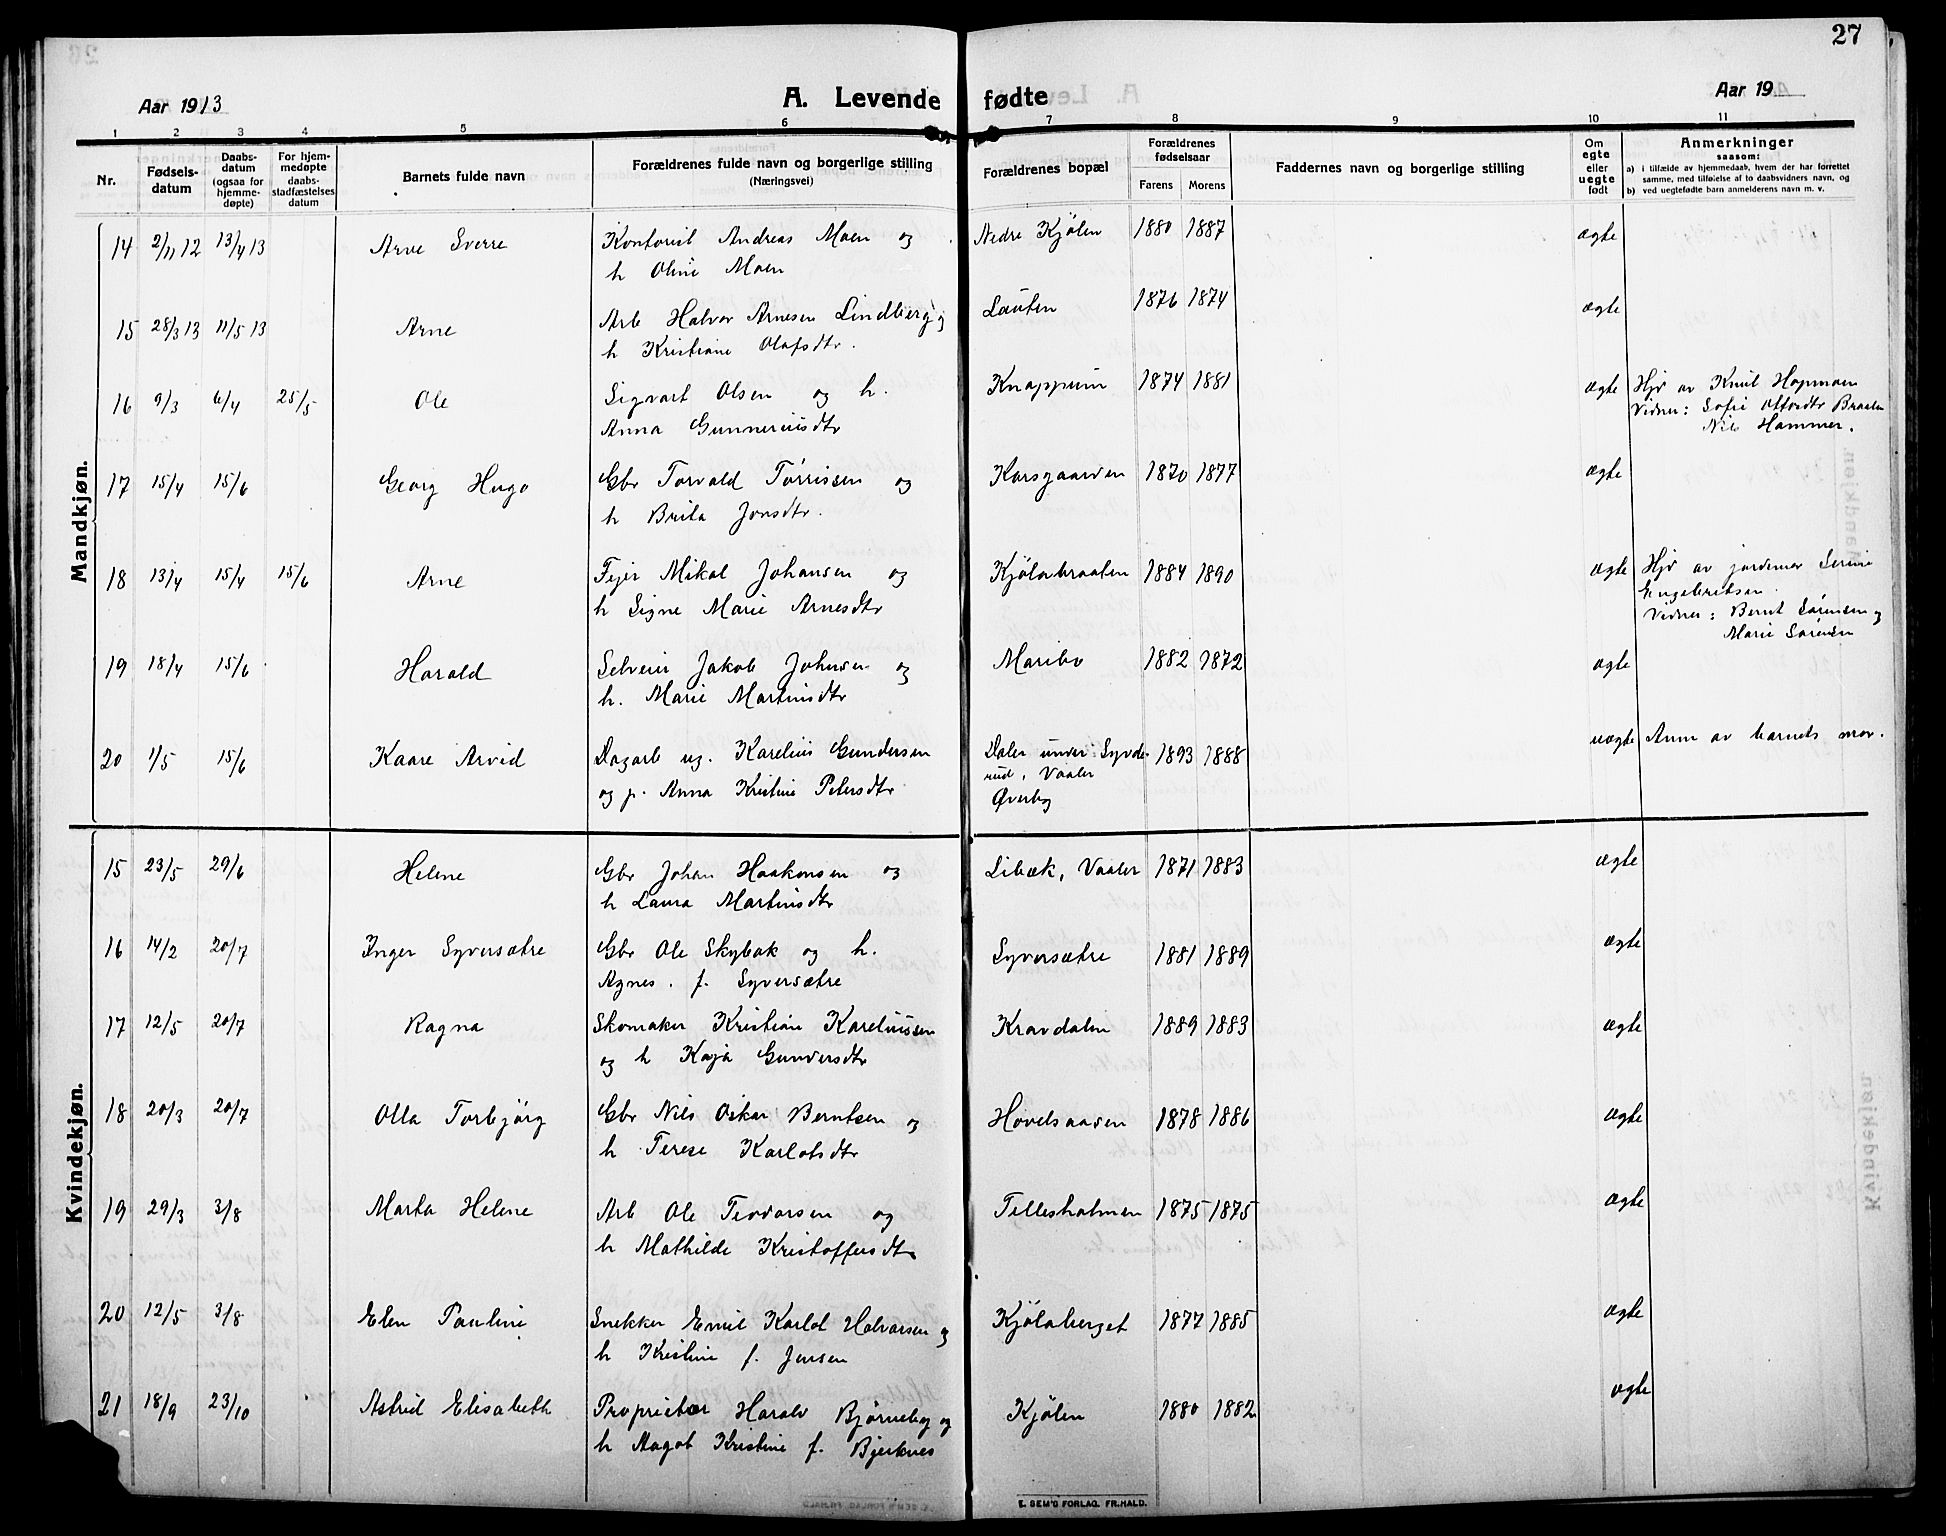 27
Aar 1913
A. Levende fødte
Aar 19
1 2 3 4 5 6 7 8 9 10 11
Nr.
Fødsels-
datum
Daabs-
datum
(ogsaa for
hjemme-
døpte)
For hjem-
medøpte
daabs-
stadfæstelses
datum
Barnets fulde navn
Forældrenes fulde navn og borgerlige stilling
(Næringsvei)
Forældrenes bopæl
Forældrenes
fødselsaar
Farens Morens
Faddernes navn og borgerlige stilling
Om
egte
eller
uegte
født
Anmerkninger
saasom:
a) i tilfælde av hjemmedaab, hvem der har forrettet
samme, med tilføielse af to daabsvidners navn, og
b) ved uegtefødte barn anmelderens navn m. v.
Mandkjøn.
14 2/11 12 13/4 13 Arne Sverre Kontorist Andreas Moen og Nedre Kjølen 1880 1887 ægte
h Oline Moen
15 28/3 13 11/5 13 Arne Arb Halvor Arnesen Lindberg og Lauten 1876 1874 ægte
h Kristiane Olafsdtr.
16 9/3 6/4 25/5 Ole Sigvart Olsen og h. Knappum 1874 1881 ægte Hjd av Knut Hopmoen
Anna Gunneriusdtr Vidner: Sofie Braaten
Nils Hammer.
17 15/4 15/6 Georg Hugo Gbr Torvald Tørrissen og Korsgaarden 1870 1877 ægte
h Brita Jonsdtr.
18 13/4 15/4 15/6 Arne Mikal Johansen og Kjølabraaten 1884 1890 ægte Hjd av jordemor Serine
h Signe Marie Arnesdtr Engebretsen.
Vidner: Bernt Sørensen og
Marie Sørensen
19 18/4 15/6 Harald Selveier Jakob Johnsen og Maribo 1882 1872 ægte
h. Marie Martinsdtr
20 1/5 15/6 Kaare Arvid Dagarb ug. Karelius Gundersen Daler under Syvde- 1893 1888 uægte Anm av barnets mor.
og p. Anna Kristine Petersdtr rud, Vaaler
Øverby
Kvindekjøn.
15 23/5 29/6 Helene Gbr Johan Haakonsen og Libæk, Vaaler 1871 1883 ægte
h Laura Martinsdtr
16 14/2 20/7 Inger Syversætre Gbr Ole Skybak og h. Syversætre 1881 1889 ægte
Agnes. f. Syversætre
17 12/5 20/7 Ragna Skomaker Kristian Kareliussen Kravdalen 1889 1883 ægte
og h Kaja Gundersdtr
18 20/3 20/7 Olla Torbjörg Gbr Nils Oskar Berntsen og Hovelsaasen 1878 1886 ægte
h Terese Karlotsdtr
19 29/3 3/8 Marta Helene Arb Ole Teodorsen og Tillesholmen 1875 1875 ægte
h Mathilde Kristoffersdtr
20 12/5 3/8 Elen Pauline Snekker Emil Karlot Halvorsen og Kjölaberget 1877 1885 ægte
h Kristine f. Jensen
21 18/9 23/10 Astrid Elisabeth Proprietær Harald Bjørneby og Kjølen 1880 1882 ægte
h Magot Kristine f. Bjerknes
E. SEM'S FORLAG. FR.HALD.